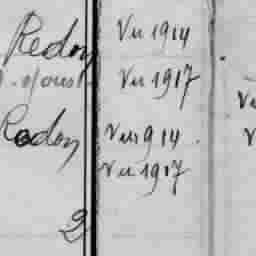 Redon Vu 1914
Vu 1917
Redon Vu 1914.
Vu 1917
2